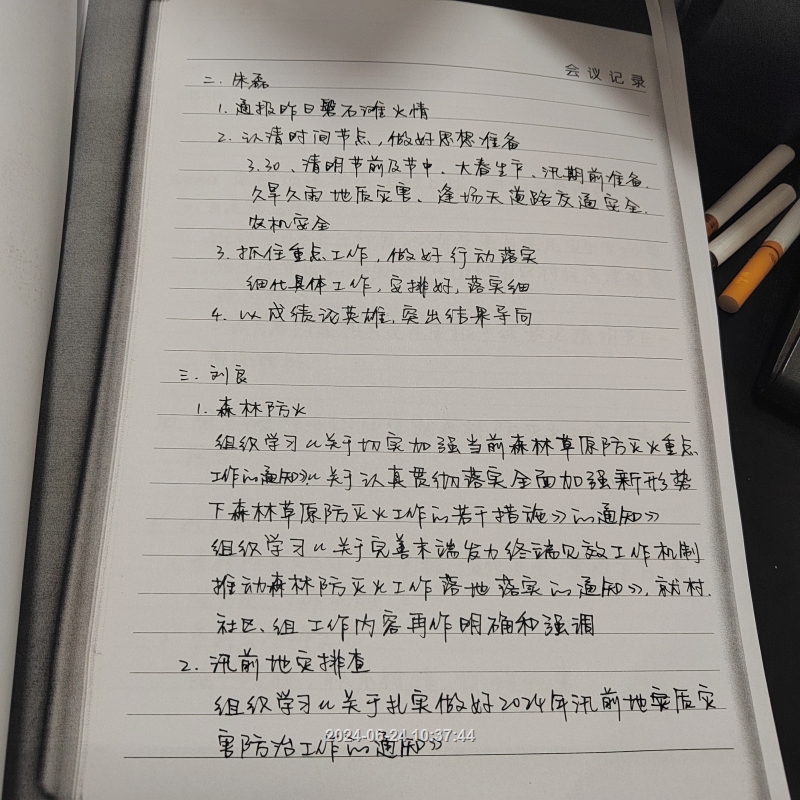 会议记录
二.朱磊
1.通报昨日磐石滩火情
2.认清时间节点,做好思想准备
3.30、清明节前及节中、大春生产、汛期前准备、
久旱久雨地质灾害、逢场天道路交通安全、
农机安全
3.抓住重点工作,做好行动落实
细化具体工作,安排好,落实细
4.以成绩论英雄,突出结果导向
三.刘良
1.森林防火
组织学习《关于切实加强当前森林草原防灭火重点
工作的通知》《关于认真贯彻落实全面加强新形势
下森林草原防灭火工作的若干措施》的通知》
组织学习《关于完善末端发力终端见效工作机制
推动森林防灭火工作落地落实的通知》,就村、
社区、组工作内容再作明确和强调
2.汛前地灾排查
组织学习《关于扎实做好2024年汛前地质灾
害防治工作的通知》
2024-06-24 10:37:44